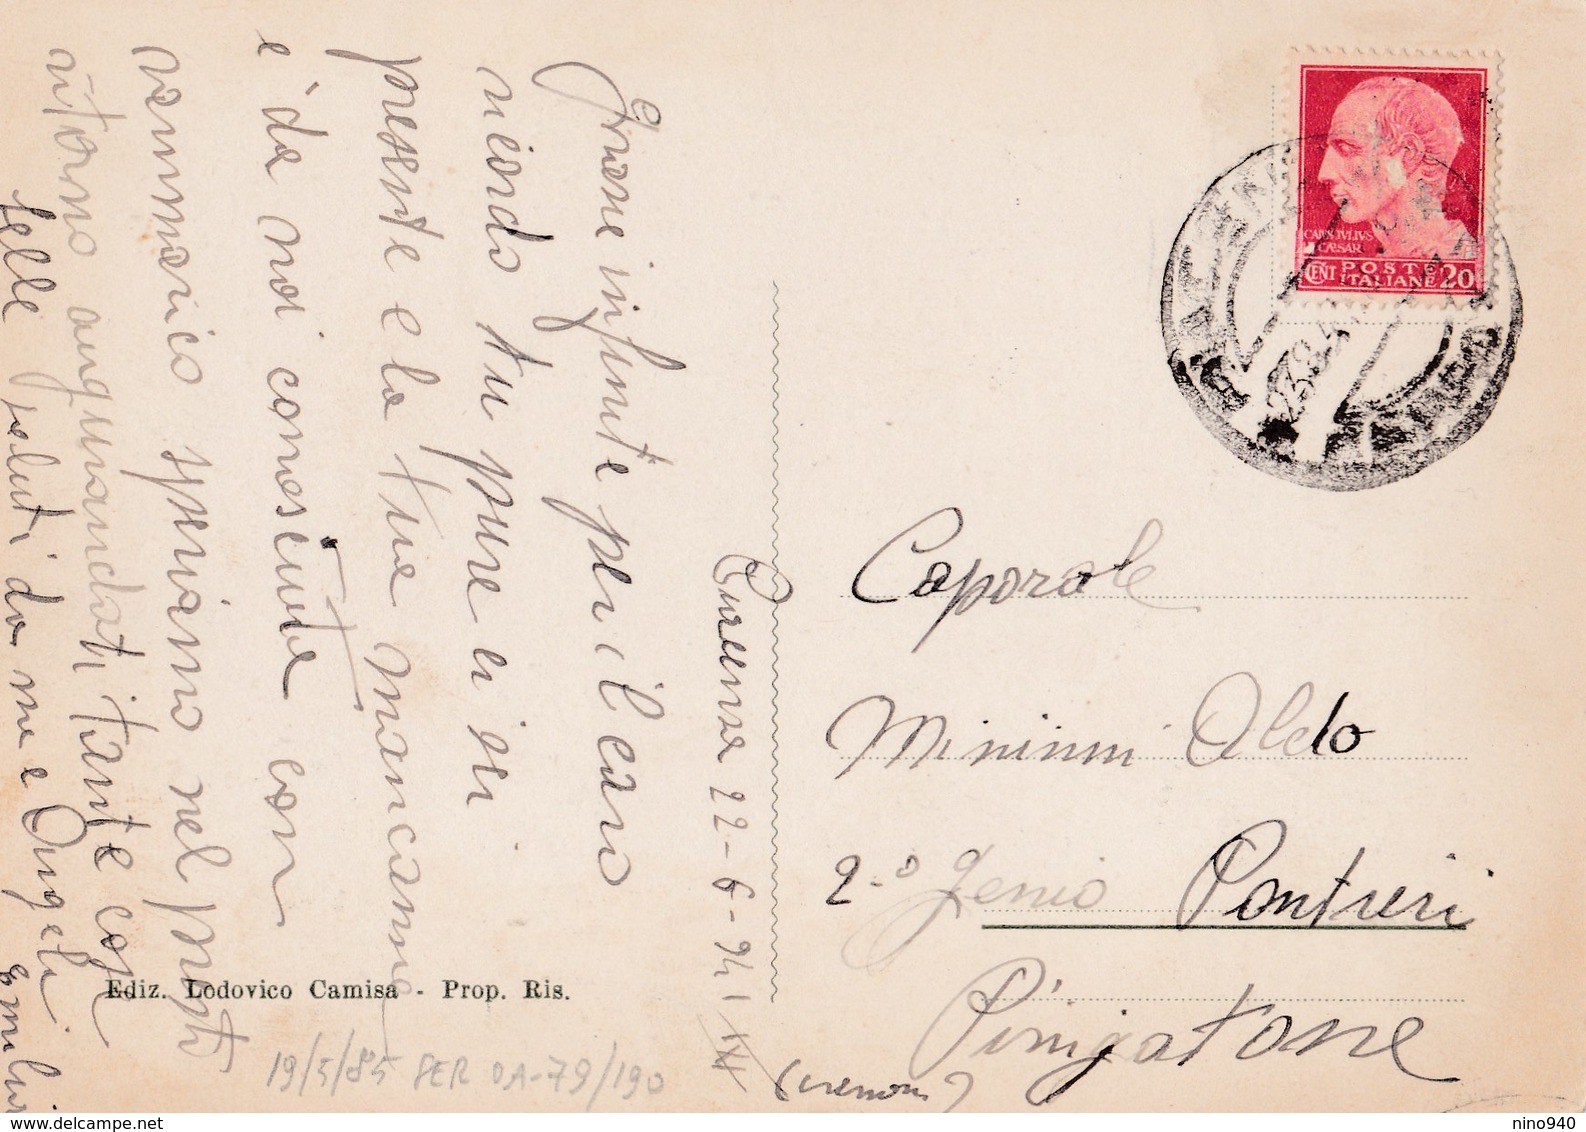 Aurensa 22-6-941 XIX
Grasie infinite per il caro
ricordo tu pure ci sei
presente e la tua mancansa
è da noi conosciuta con
rammarico speriamo nel presto
ritorno augurandoti tante cose
belle saluti da me e Angeli
Emilio
CAIVS IVLIVS
CAESAR
CENT POSTE ITALIANE 20
Caporale
Minimmi Aldo
2.º Genio Pontieri
Pisigatone
(cremona)
Ediz. Lodovico Camisa - Prop. Ris.
19/5/85 PER DA-79/190
nino940